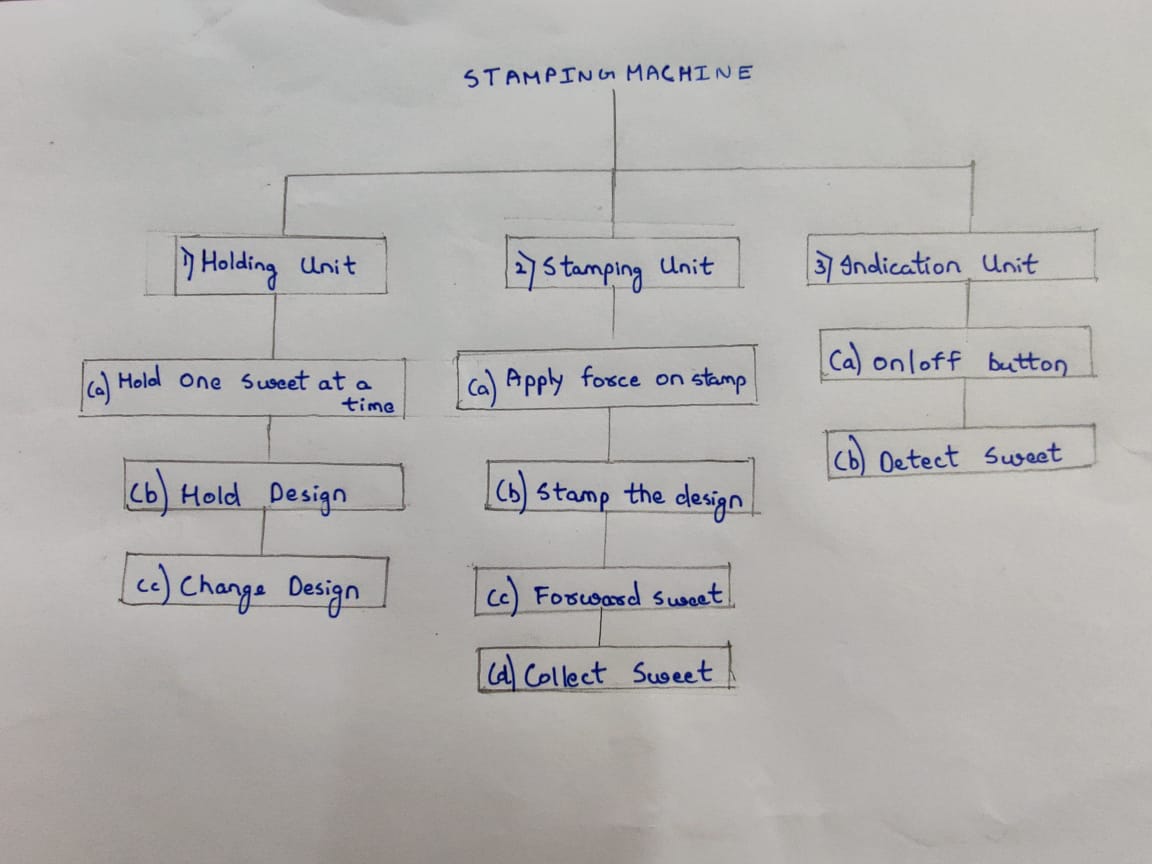 STAMPING MACHINE
1) Holding Unit
(a) Hold one sweet at a
time
(b) Hold Design
(c) Change Design
2) Stamping Unit
(a) Apply force on stamp
(b) Stamp the design
(c) Forward sweet
(d) Collect Sweet
3) Indication Unit
(a) on/off button
(b) Detect Sweet